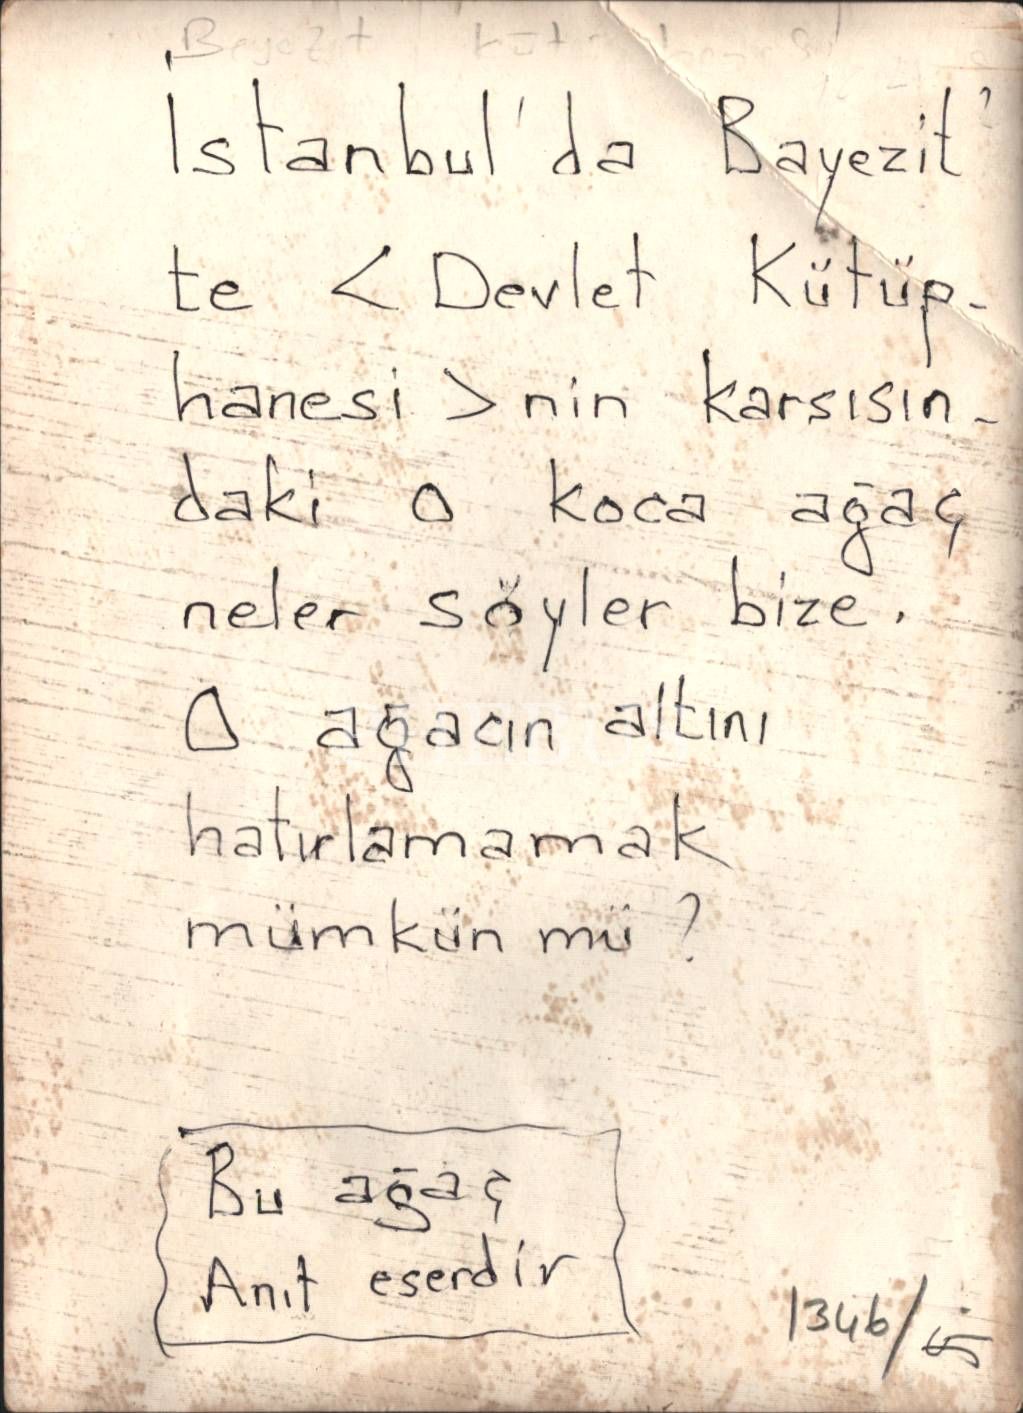 Beyezit
İstanbul'da Bayezit'
te < Devlet Kütüp-
hanesi > nin karsısın-
daki o koca ağaç
neler söyler bize.
O ağacın altını
hatırlamamak
mümkün mü ?
Bu ağaç
Anıt eserdir
1346/